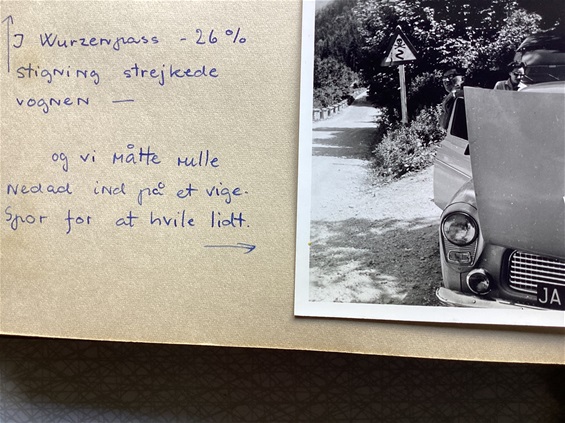 I Wurzenpass - 26%
stigning strejkede
vognen —
og vi måtte rulle
nedad ind på et vige-
spor for at hvile lidt.
JA